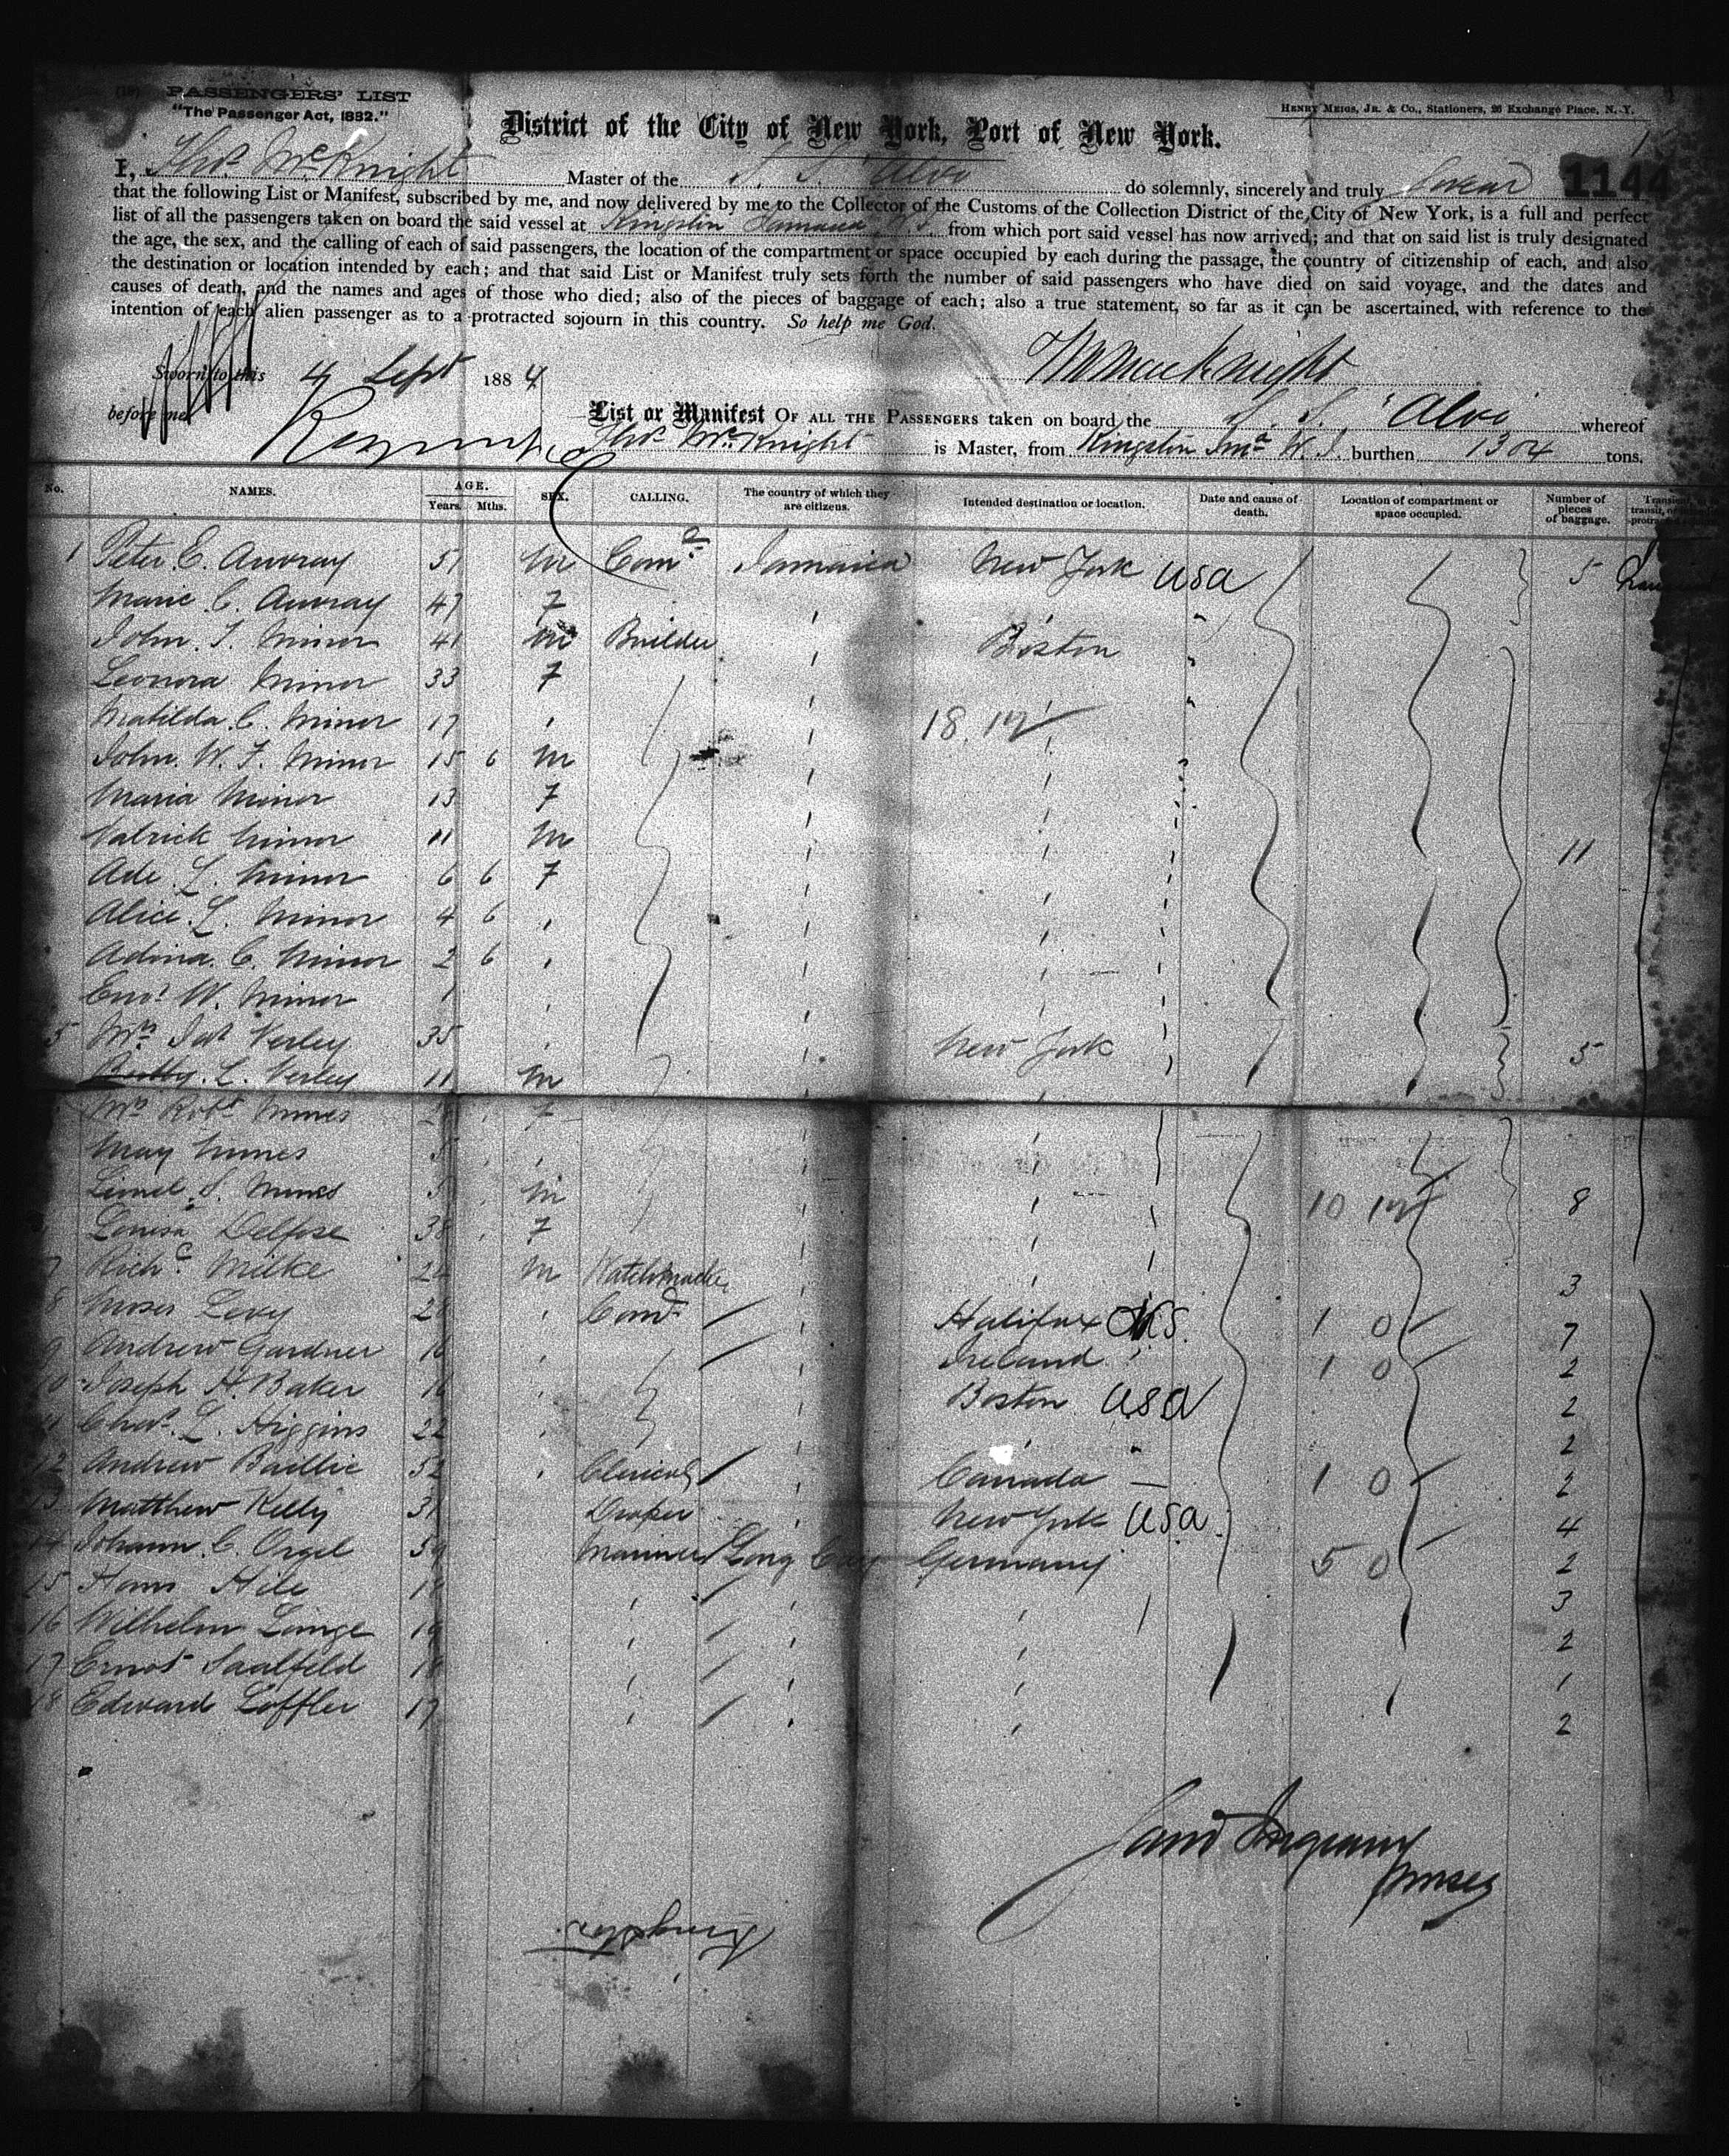 PASSENGERS' LIST
"The Passenger Act, 1882."
HENRY MEIGS, JR. & CO., Stationers, 26 Exchange Place, N. Y.
District of the City of New York, Port of New York.
1
I, Thos. McKnight Master of the S. S. Alvo do solemnly, sincerely and truly Swear 1144
that the following List or Manifest, subscribed by me, and now delivered by me to the Collector of the Customs of the Collection District of the City of New York, is a full and perfect
list of all the passengers taken on board the said vessel at Kingston Jamaica W. I. from which port said vessel has now arrived; and that on said list is truly designated
the age, the sex, and the calling of each of said passengers, the location of the compartment or space occupied by each during the passage, the country of citizenship of each, and also
the destination or location intended by each; and that said List or Manifest truly sets forth the number of said passengers who have died on said voyage, and the dates and
causes of death, and the names and ages of those who died; also of the pieces of baggage of each; also a true statement, so far as it can be ascertained, with reference to the
intention of each alien passenger as to a protracted sojourn in this country. So help me God.
Sworn to this 4 Sept 1884
before me
List or Manifest OF ALL THE PASSENGERS taken on board the S. S. "Alvo" whereof
Thos. McKnight is Master, from Kingston Jma W. I. burthen 1304 tons.
No. NAMES. AGE. Years. Mths. SEX. CALLING. The country of which they are citizens. Intended destination or location. Date and cause of death. Location of compartment or space occupied. Number of pieces of baggage.
1 Peter E. Auvray 51 m Jamaica New York USA 5
Marie C. Auvray 47 F "
John T. Minor 41 m Builder " Boston "
Leonora Minor 33 F " "
Matilda C. Minor 17 " " 18. "
John W. F. Minor 15 6 m " "
Maria Minor 13 F " "
Patrick Minor 11 m " " 11
Ade L. Minor 6 6 F " "
Alice L. Minor 4 6 " " "
Adina C. Minor 2 6 " " "
W. Minor 1 " " "
5 Mrs Jas Verley 35 " " New York 5
L. Verley 11 m " "
Mrs Robt Nunes F " "
May Nunes 5 " " "
Lionel S. Nunes 3 m " " 10 8
Louisa Delfose 38 F " "
7 Richd. Milke 24 m Watchmaker " " 3
8 Moses Levy 28 " " Halifax N.S. 1 0 7
9 Andrew Gardner 16 " " Ireland 1 0 2
10 Joseph H. Baker 16 " " Boston USA 2
11 Chas. L. Higgins 22 " " " " 2
12 Andrew Baillie 52 " Clerical " Canada 1 0 2
13 Matthew Kelly 31 Draper " New York USA 4
14 Johann C. Orgel 59 Mariner Long Cay Germany 5 0 2
15 Hans Hile 18 " " " 3
16 Wilhelm Lange 19 " " " 2
17 Ernst Saalfeld 18 " " " 1
18 Edward Loffler 17 " " " 2
Purser
Kingston